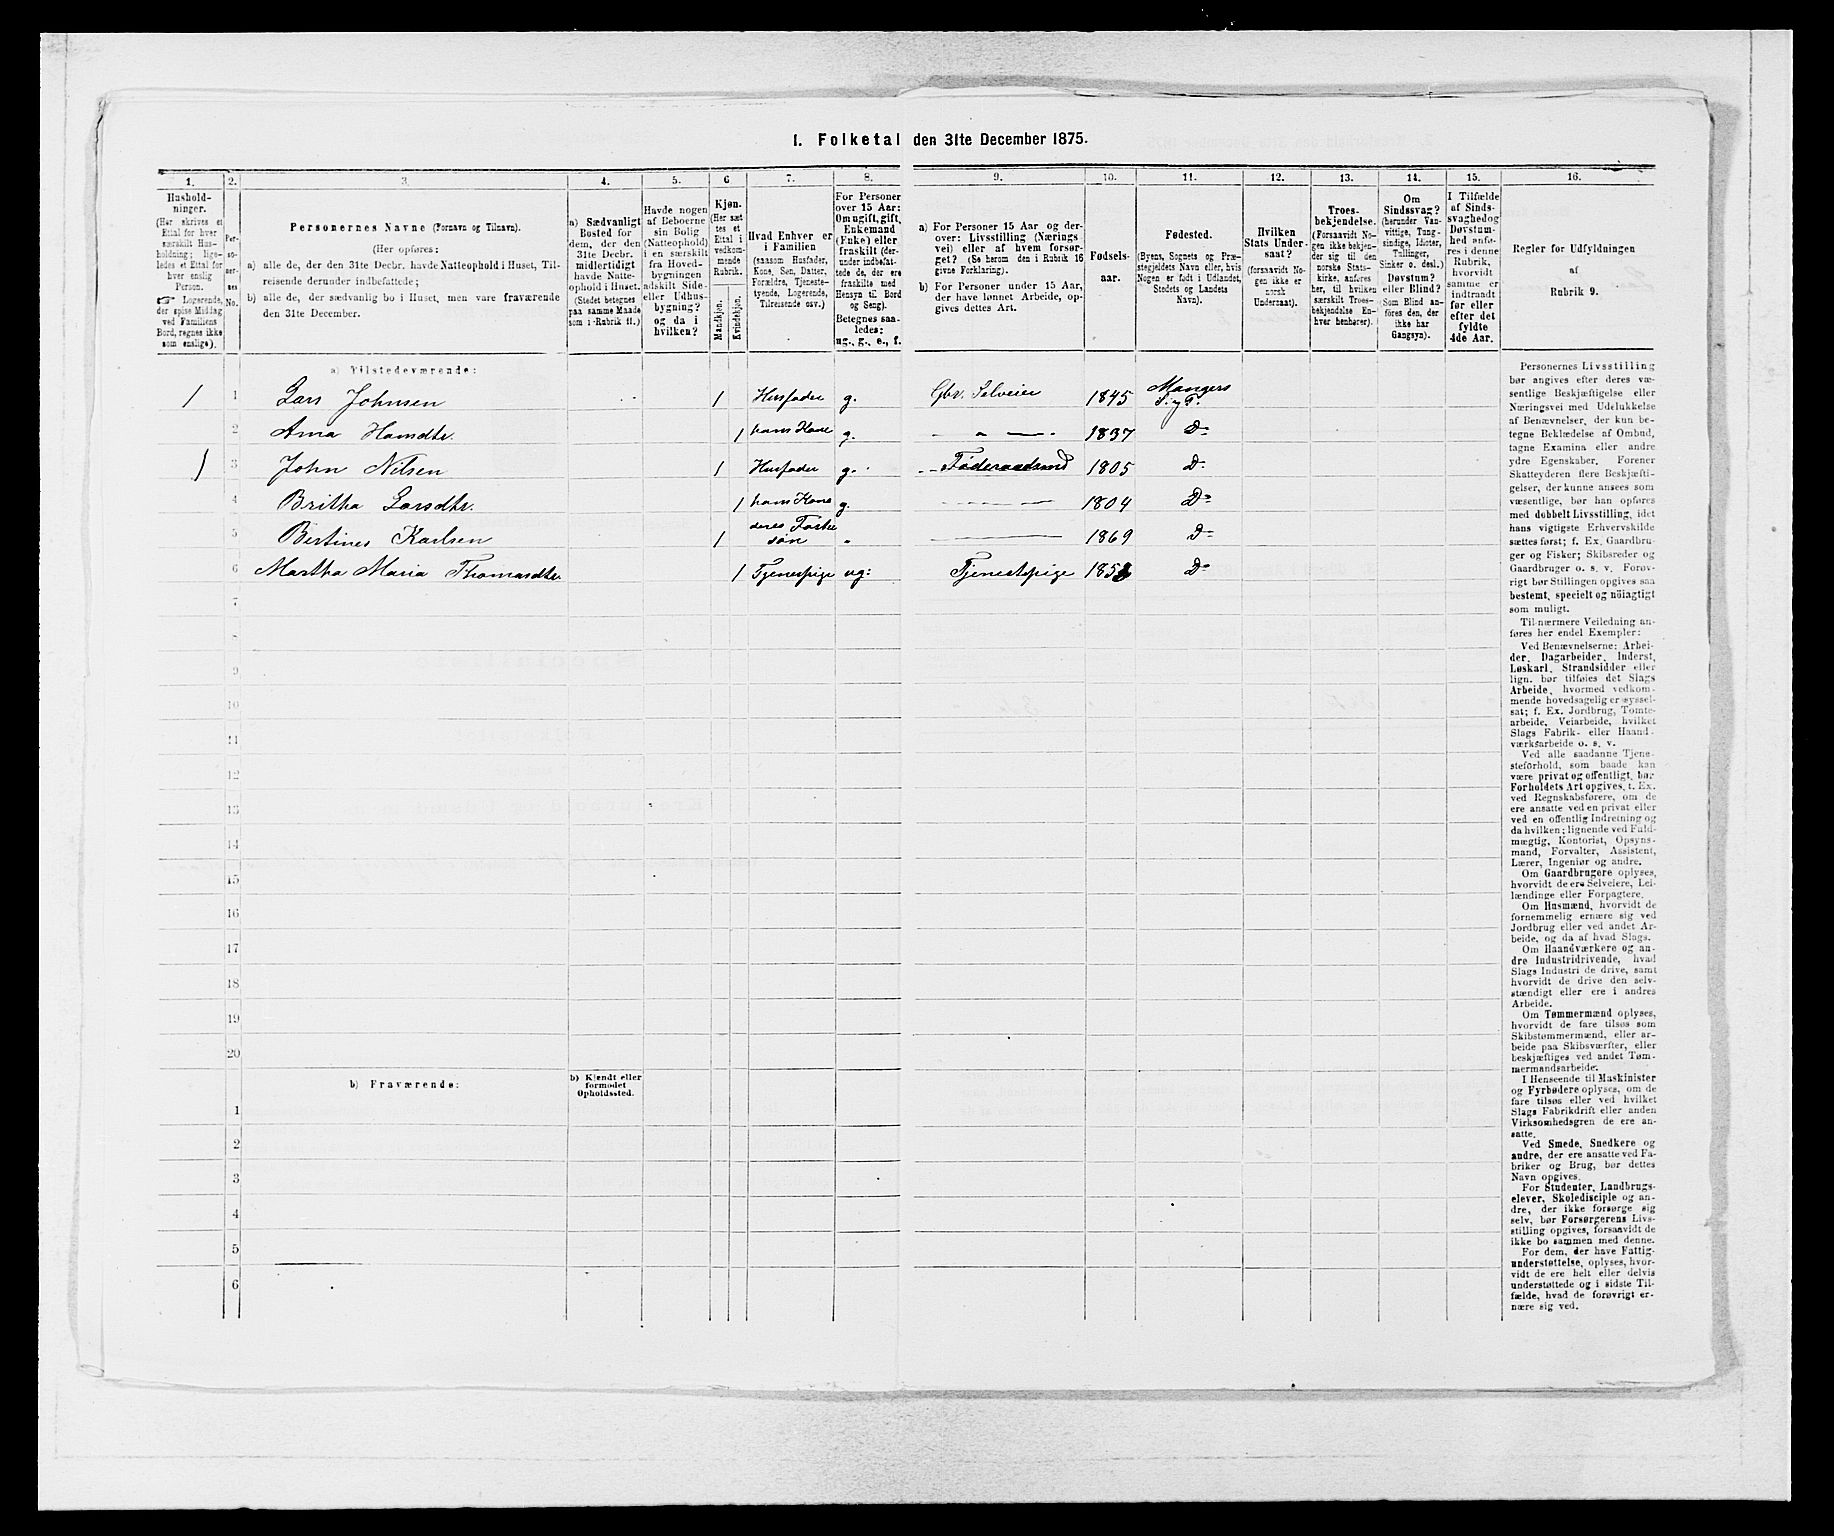 I. Folketal den 31te December 1875.
1. 2. 3. 4. 5. 6 7. 8. 9. 10. 11. 12. 13. 14. 15. 16.
Hushold-
ninger.
(Her skrives et
Ettal for hver
særskilt Hus-
holdning; lige-
ledes et Ettal for
hver enslig
Person.
☞ Logerende,
der spise Middag
ved Familiens
Bord, regnes ikke
som enslige).
Per-
so-
ner-
nes
No.
Personernes Navne (Fornavn og Tilnavn).
(Her opføres:
a) alle de, der den 31te Decbr. havde Natteophold i Huset, Til-
reisende derunder indbefattede;
b) alle de, der sædvanlig bo i Huset, men vare fraværende
den 31te December.
a) Sædvanligt
Bosted for
dem, der den
31te Decbr.
midlertidigt
havde Natte-
ophold i Huset.
(Stedet betegnes
paa samme Maade
som i Rubrik 11.)
Havde nogen
af Beboerne
sin Bolig
(Natteophold)
i en særskilt
fra Hoved-
bygningen
adskilt Side-
eller Udhus-
bygning?
og da i
hvilken?
Kjøn.
(Her sæt
tes et
Ettal i
vedkom-
mende
Rubrik.
Mandkjøn.
Kvindekjøn.
Hvad Enhver er
i Familien
(saasom Husfader,
Kone, Søn, Datter,
Forældre, Tjeneste-
tyende, Logerende,
Tilreisende osv.)
For Personer
over 15 Aar:
Om ugift, gift,
Enkemand
(Enke) eller
fraskilt (der-
under indbefat-
tede de, der ere
fraskilte med
Hensyn til Bord
og Seng).
Betegnes saa-
ledes:
ug., g., e., f.
a) For Personer 15 Aar og der-
over: Livsstilling (Nærings
vei) eller af hvem forsør-
get? (Se herom den i Rubrik 16
givne Forklaring).
b) For Personer under 15 Aar,
der have lønnet Arbeide, op-
gives dettes Art.
Fødsels-
aar.
Fødested.
(Byens, Sognets og Præ-
stegjeldets Navn eller, hvis
Nogen er født i Udlandet,
Stedets og Landets
Navn).
Hvilken
Stats Under-
saat?
(forsaavidt No-
gen ikke er
norsk
Undersaat).
Troes-
bekjendelse.
(Forsaavidt No-
gen ikke bekjen-
der sig til den
norske Stats-
kirke, anføres
her, til hvilken
særskilt Troes-
bekjendelse En-
hver henhører).
Om
Sindssvag?
(herunder Van-
vittige, Tung-
sindige, Idioter,
Tullinger,
Sinker o. desl.)
Døvstum?
eller Blind?
(Som Blind an-
føres den, der
ikke har
Gangsyn).
I Tilfælde
af Sinds-
svaghed og
Døvstum-
hed anfø-
res i denne
Rubrik,
hvorvidt
samme er
indtraadt
før eller
efter det
fyldte
4de Aar.
Regler for Udfyldningen
af
Rubrik 9.
a) Tilstedeværende:
1 1 Lars Johnsen 1 Husfader g. Gbr. Selveier 1845 Mangers S. og P.
2 Anna Hansdtr. 1 hans Kone g. — " — 1837 Do
1 3 John Nilsen 1 Husfader g. Føderaadsmd 1805 Do
4 Britha Larsdtr. 1 hans Kone g. — 1804 Do
5 Bertines Karlsen 1 deres Foster søn " — 1869 Do
6 Martha Maria Thomasdtr. 1 Tjenestpige ug: Tjenestpige Do
7
8
9
10
11
12
13
14
15
16
17
18
19
20
b) Fraværende:
b) Kjendt eller
formodet
Opholdssted.
1
2
3
4
5
6
Personernes Livsstilling
bør angives efter deres væ-
sentlige Beskjæftigelse eller
Næringsvei med Udelukkelse
af Benævnelser, der kun be-
tegne Beklædelse af Ombud,
tagne Examina eller andre
ydre Egenskaber. Forener
Skatteyderen flere Beskjæfti-
gelser, der kunne ansees som
væsentlige, bør han opføres
med dobbelt Livsstilling, idet
hans vigtigste Erhvervskilde
sættes først; f. Ex. Gaardbru-
ger og Fisker; Skibsreder og
Gaardbruger o. s. v. Forøv-
rigt bør Stillingen opgives saa
bestemt, specielt og nöiagtigt
som muligt.
Til nærmere Veiledning an-
føres her endel Exempler:
Ved Benævnelserne: Arbei-
der, Dagarbeider, Inderst,
Løskarl, Strandsidder eller
lign. bør tilføies det Slags
Arbeide, hvormed vedkom-
mende hovedsagelig er syssel-
sat; f. Ex. Jordbrug, Tomte-
arbeide, Veiarbeide, hvilket
Slags Fabrik- eller Haand-
værksarbeide o. s. v.
Ved alle saadanne Tjene-
steforhold, som baade kan
være privat og offentligt, bør
Forholdets Art opgives, t. Ex.
ved Regnskabsførere, om de
ere ansatte ved en privat eller
ved en offentlig Indretning og
da hvilken; lignende ved Fuld-
mægtig, Kontorist, Opsyns-
mand, Forvalter, Assistent,
Lærer, Ingeniør og andre.
Om Gaardbrugere oplyses,
hvorvidt de ere Selveiere, Lei-
lændinge eller Forpagtere.
Om Husmænd, hvorvidt de
fornemmelig ernære sig ved
Jordbrug eller ved andet Ar-
beide, og da af hvad Slags.
Om Haandværkere og an-
dre Industridrivende, hvad
Slags Industri de drive, samt
hvorvidt de drive den selv-
stændigt eller ere i andres
Arbeide.
Om Tømmermænd oplyses,
hvorvidt de fare tilsøs som
Skibstømmermænd, eller ar-
beide paa Skibsværfter, eller
beskjæftiges ved andet Tøm-
mermandsarbeide.
I Henseende til Maskinister
og Fyrbødere oplyses, om de
fare tilsøs eller ved hvilket
Slags Fabrikdrift eller anden
Virksomhedsgren de ere an-
satte.
Ved Smede, Snedkere og
andre, der ere ansatte ved Fa-
briker og Brug, bør dettes
Navn opgives.
For Studenter, Landbrugs-
elever, Skoledisciple og an-
dre, der ikke forsørge sig
selv, bør Forsørgerens Livs-
stilling opgives, forsaavidt de
ikke bo sammen med denne.
For dem, der have Fattig-
understøttelse, oplyses, hvor-
vidt de ere helt eller delvis
understøttede og i sidste Til-
fælde, hvad de forøvrigt er-
nære sig ved.